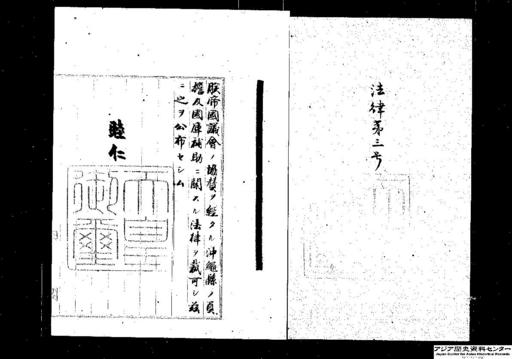 法律第三号
朕帝國議會ノ協賛ヲ經タル沖繩縣ノ負
擔及國庫補助ニ關スル法律ヲ裁可シ茲
ニ之ヲ公布セシム
睦仁
天皇御璽
アジア歴史資料センター
Japan Center for Asian Historical Records